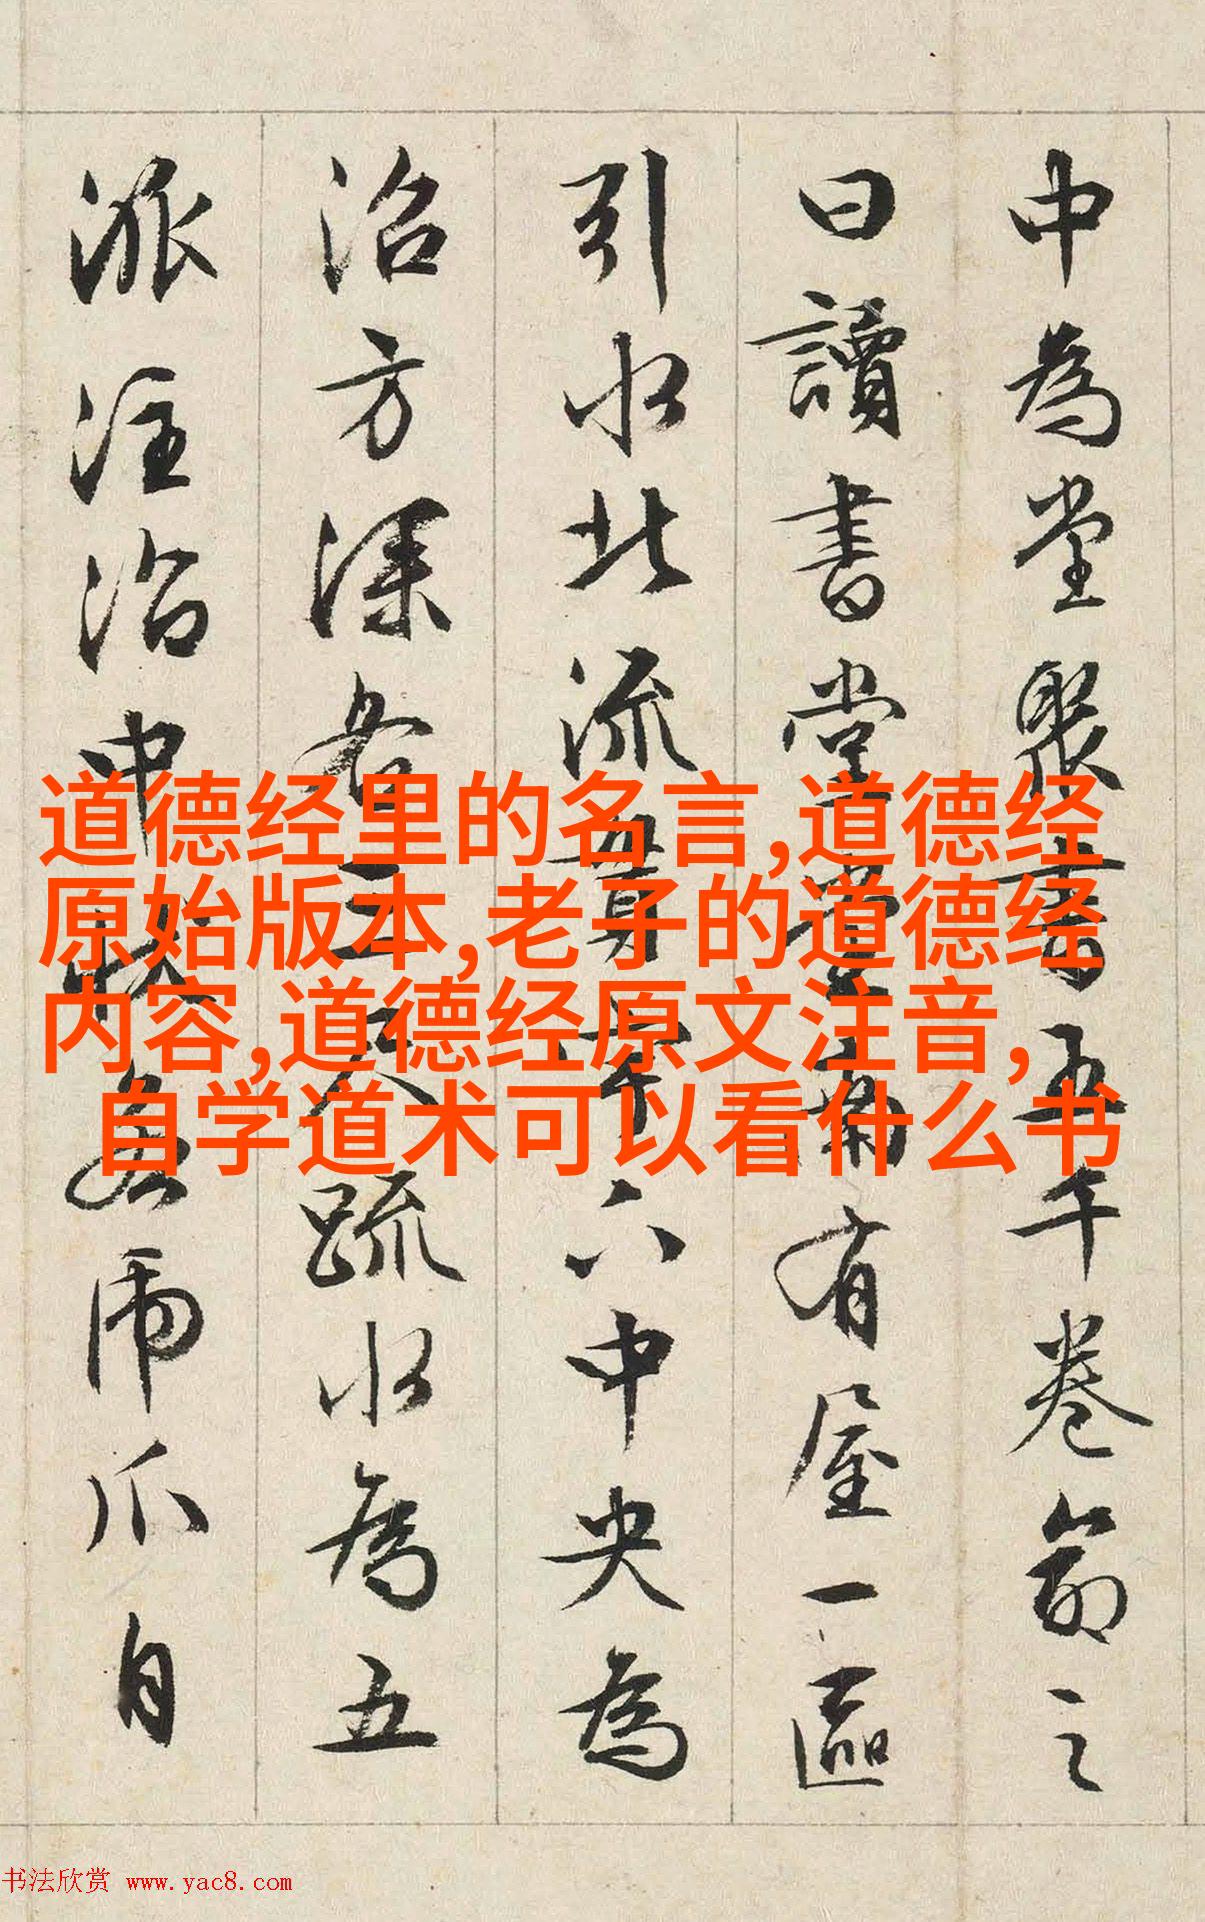 中為堂聚書五千卷命之
曰讀書堂堂南有屋一區
引水北流貫宇下中央為
沼方深各三尺疏水為五
派注沼中狀若虎爪自
道德经里的名言,道德经
原始版本,老子的道德经
内容,道德经原文注音,
自学道术可以看什么书
书法欣赏 www.yac8.com